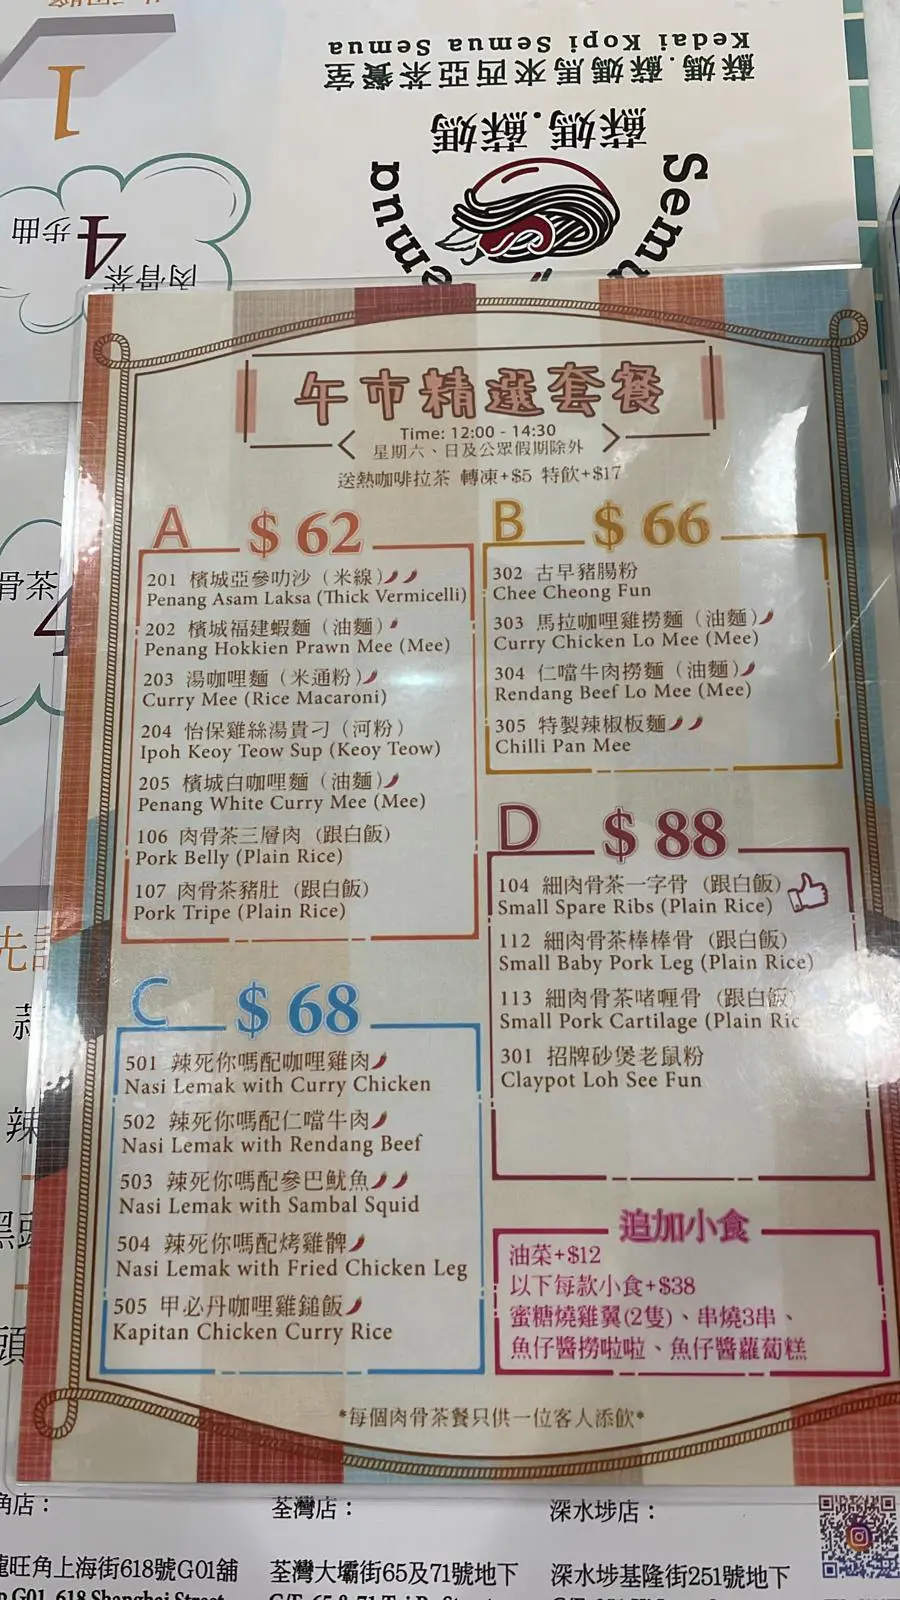 Kedai Kopi Semua Semua
蘇媽.蘇媽馬來西亞茶餐室
蘇媽.蘇媽
1
4
步曲
肉骨茶
骨茶
午市精選套餐
Time: 12:00 - 14:30
星期六、日及公眾假期除外
送熱咖啡拉茶 轉凍+$5 特飲+$17
A $62
201 檳城亞參叻沙（米線）
Penang Asam Laksa (Thick Vermicelli)
202 檳城福建蝦麵（油麵）
Penang Hokkien Prawn Mee (Mee)
203 湯咖喱麵（米通粉）
Curry Mee (Rice Macaroni)
204 怡保雞絲湯貴刁（河粉）
Ipoh Keoy Teow Sup (Keoy Teow)
205 檳城白咖喱麵（油麵）
Penang White Curry Mee (Mee)
106 肉骨茶三層肉（跟白飯）
Pork Belly (Plain Rice)
107 肉骨茶豬肚（跟白飯）
Pork Tripe (Plain Rice)
B $66
302 古早豬腸粉
Chee Cheong Fun
303 馬拉咖喱雞撈麵（油麵）
Curry Chicken Lo Mee (Mee)
304 仁噹牛肉撈麵（油麵）
Rendang Beef Lo Mee (Mee)
305 特製辣椒板麵
Chilli Pan Mee
C $68
501 辣死你嗎配咖喱雞肉
Nasi Lemak with Curry Chicken
502 辣死你嗎配仁噹牛肉
Nasi Lemak with Rendang Beef
503 辣死你嗎配參巴魷魚
Nasi Lemak with Sambal Squid
504 辣死你嗎配烤雞髀
Nasi Lemak with Fried Chicken Leg
505 甲必丹咖喱雞鎚飯
Kapitan Chicken Curry Rice
D $88
104 細肉骨茶一字骨（跟白飯）
Small Spare Ribs (Plain Rice)
112 細肉骨茶棒棒骨（跟白飯）
Small Baby Pork Leg (Plain Rice)
113 細肉骨茶啫喱骨（跟白飯
Small Pork Cartilage (Plain Ric
301 招牌砂煲老鼠粉
Claypot Loh See Fun
追加小食
油菜+$12
以下每款小食+$38
蜜糖燒雞翼(2隻)、串燒3串、
魚仔醬撈啦啦、魚仔醬蘿蔔糕
*每個肉骨茶餐只供一位客人添飲*
角店：
龍旺角上海街618號G01舖
荃灣店：
荃灣大壩街65及71號地下
深水埗店：
深水埗基隆街251號地下